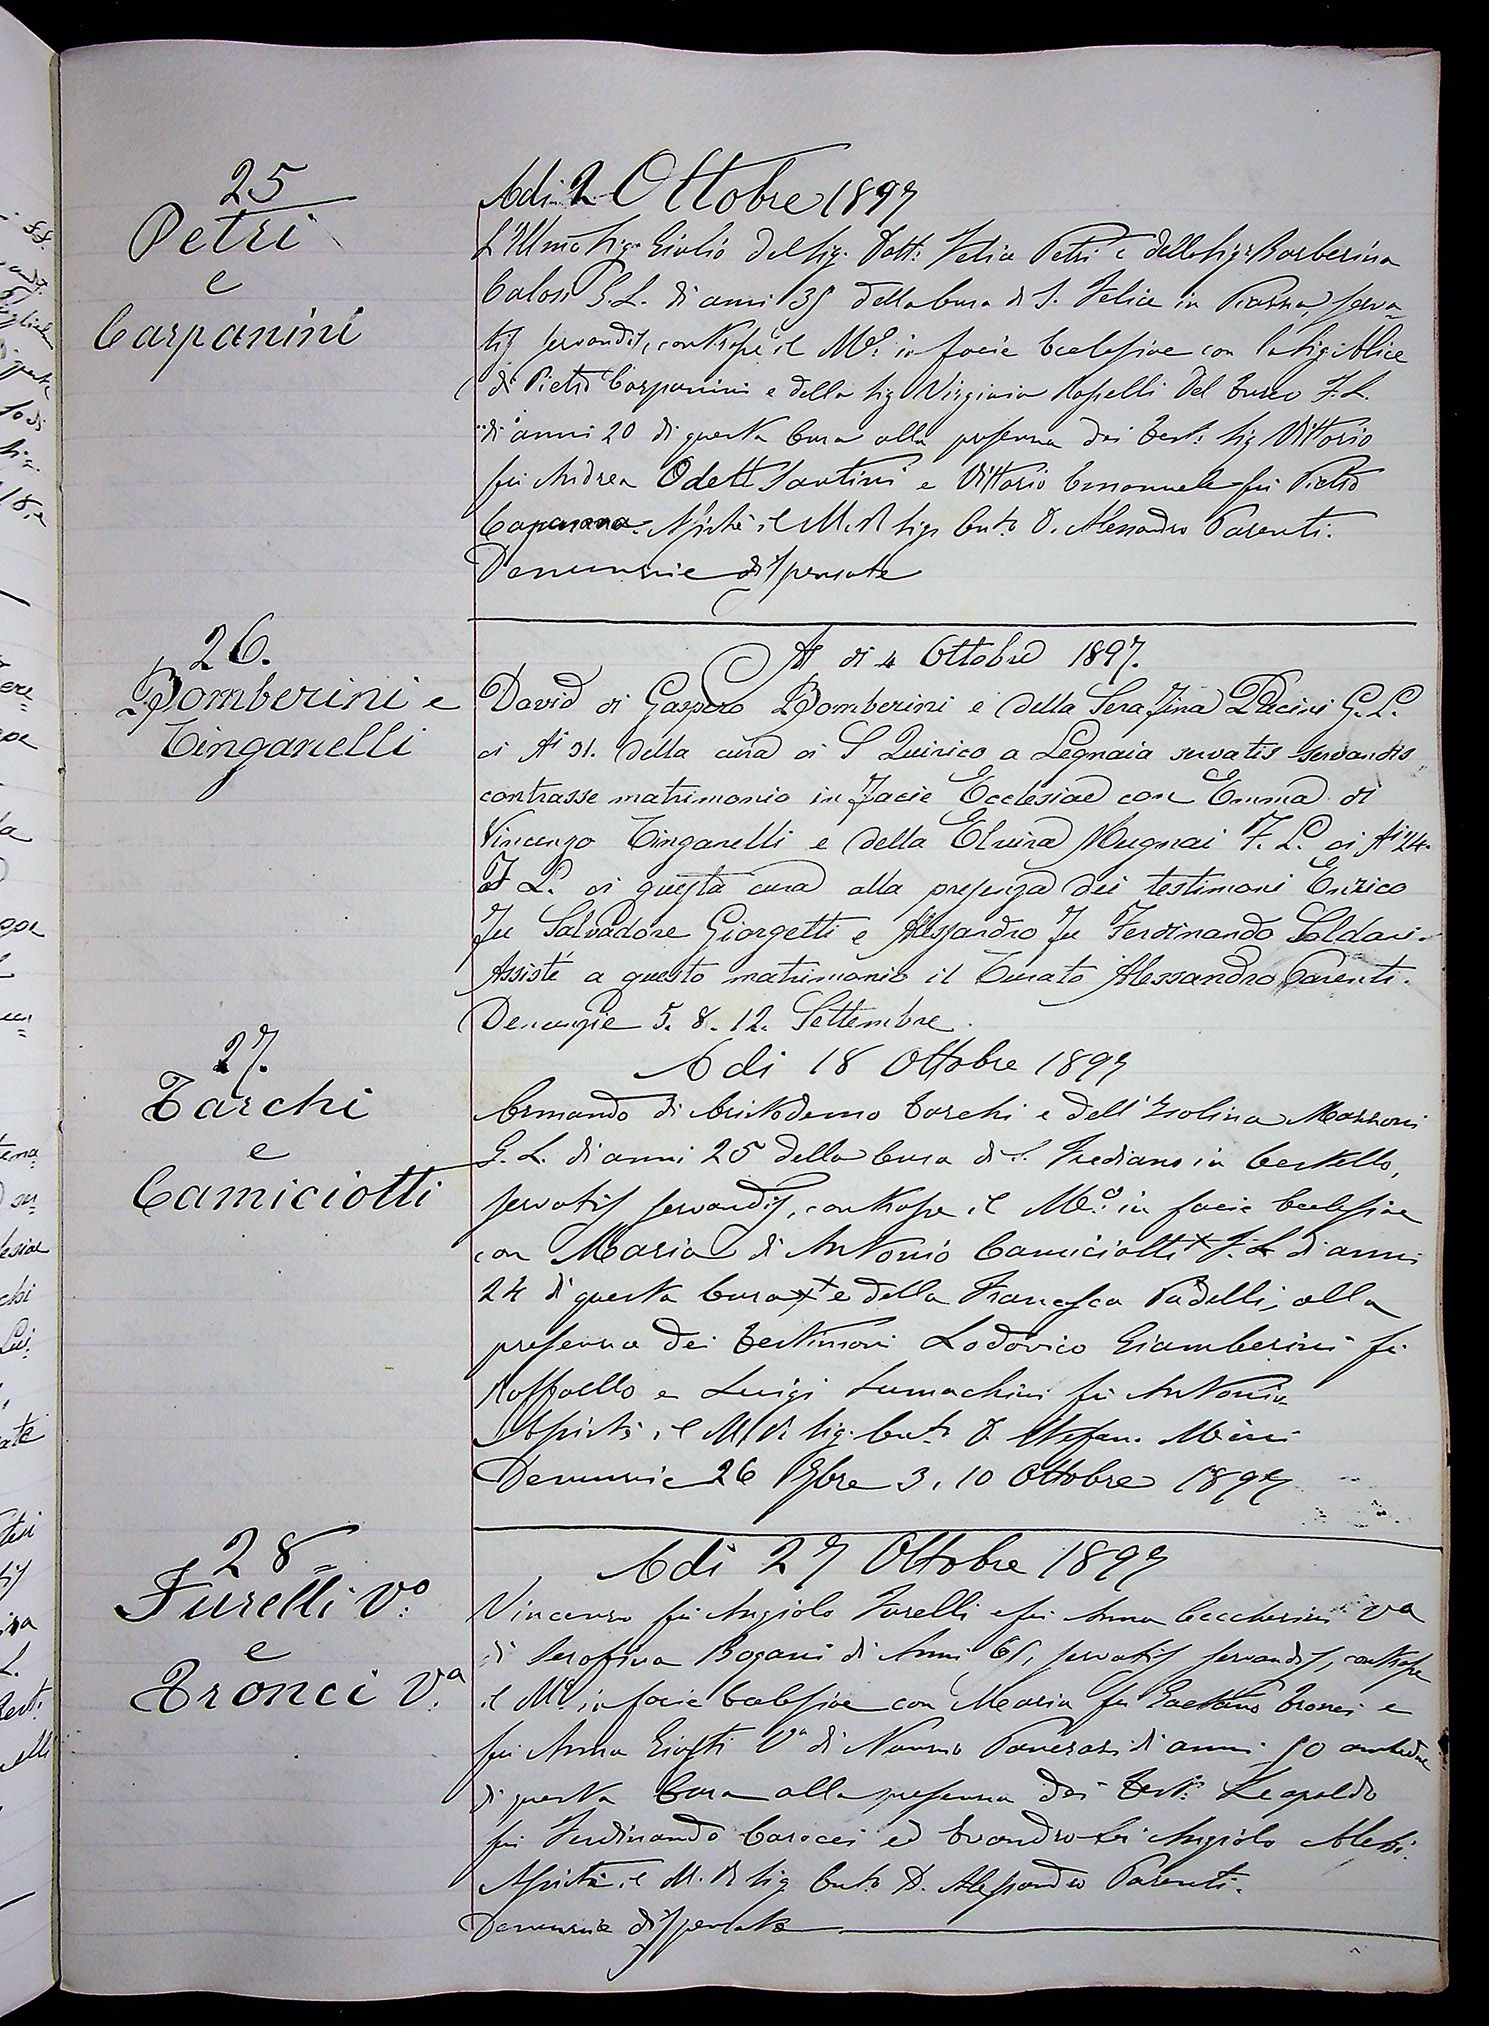 25
Petri
e
Carpanini
Adi 2 Ottobre 1897
L'Illmo Sig. Giulio del Sig. Dott. Felice Petri e della Sig. Barberina
Calosi G. L. di anni 35 della Cura di S. Felice in Piazza, serva-
tis servandis, contrasse il Mo. in facie Ecclesiae con la Sig. Alice
di Pietro Carpanini e della Sig. Virginia Rosselli Del Turco F. L.
di anni 20 di questa Cura alla presenza dei Test. Sig. Vittorio
fu Andrea Odett Santini e Vittorio Emanuele fu Pietro
Assistè il M. R. Sig. Cuto. D. Alessandro Parenti.
Denunzie dispensate
26.
Bomberini e
Tinganelli
A di 4 Ottobre 1897.
David di Gaspero Bomberini e della Serafina Pacini G. L.
di Ai 31. della cura di S Quirico a Legnaia servatis servandis
contrasse matrimonio in facie Ecclesiae con Emma di
Vincenzo Tinganelli e della Elvira Mugnai F. L. di Ai 24.
F L. di questa cura alla presenza dei testimoni Enrico
fu Salvadore Giorgetti e Alessandro fu Ferdinando Soldani.
Assisté a questo matrimonio il Curato Alessandro Parenti.
Denunzie 5. 8. 12. Settembre.
27.
Tarchi
e
Camiciotti
A di 18 Ottobre 1897
Armando di Cristodemo Tarchi e dell'Isolina Mazzoni
G. L. di anni 25 della Cura di S. Frediano in Cestello,
servatis servandis, contrasse il Mo. in facie Ecclesiae
con Maria di Antonio Camiciotti + F. L di anni
24 di questa Cura + e della Francesca Padelli, alla
presenza dei testimoni Lodovico Giamberini fu
Raffaello e Luigi Lumachini fu Antonio
Assistè il M. R. Sig. Cuto. D. Stefano Mini
Denunzie 26 7bre 3, 10 Ottobre 1897
28
Furelli Vo.
e
Tronci Va.
A di 27 Ottobre 1897
Vincenzo fu Angiolo Furelli e fu Anna Ceccherini Vo
di Serafina Bogani di Anni 61, servatis servandis, contrasse
il Mo. in facie Ecclesiae con Maria fu Gaetano Tronci e
fu Anna Giusti Va di Nanno Panerazi di anni 50 ambedue
di questa Cura alla presenza dei Test. Leopoldo
fu Ferdinando Carocci ed Evandro fu Angiolo Alessi.
Assistè il M. R. Sig. Cuto. D. Alessandro Parenti.
Denunzie dispensate